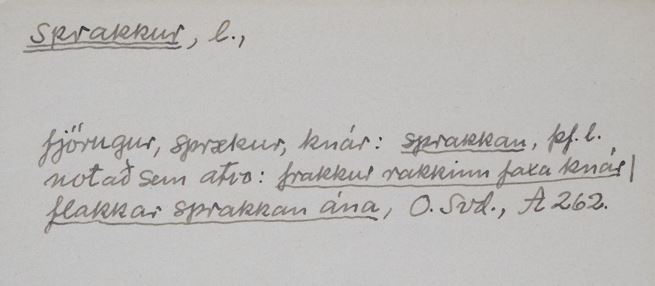 sprakkur, l.,
fjörugur, sprækur, knár: sprakkan, þf. l.
notað sem atvo: frakkur rakkinn faxa knár|
flakkar sprakkan ána, O. Svd., A 262.